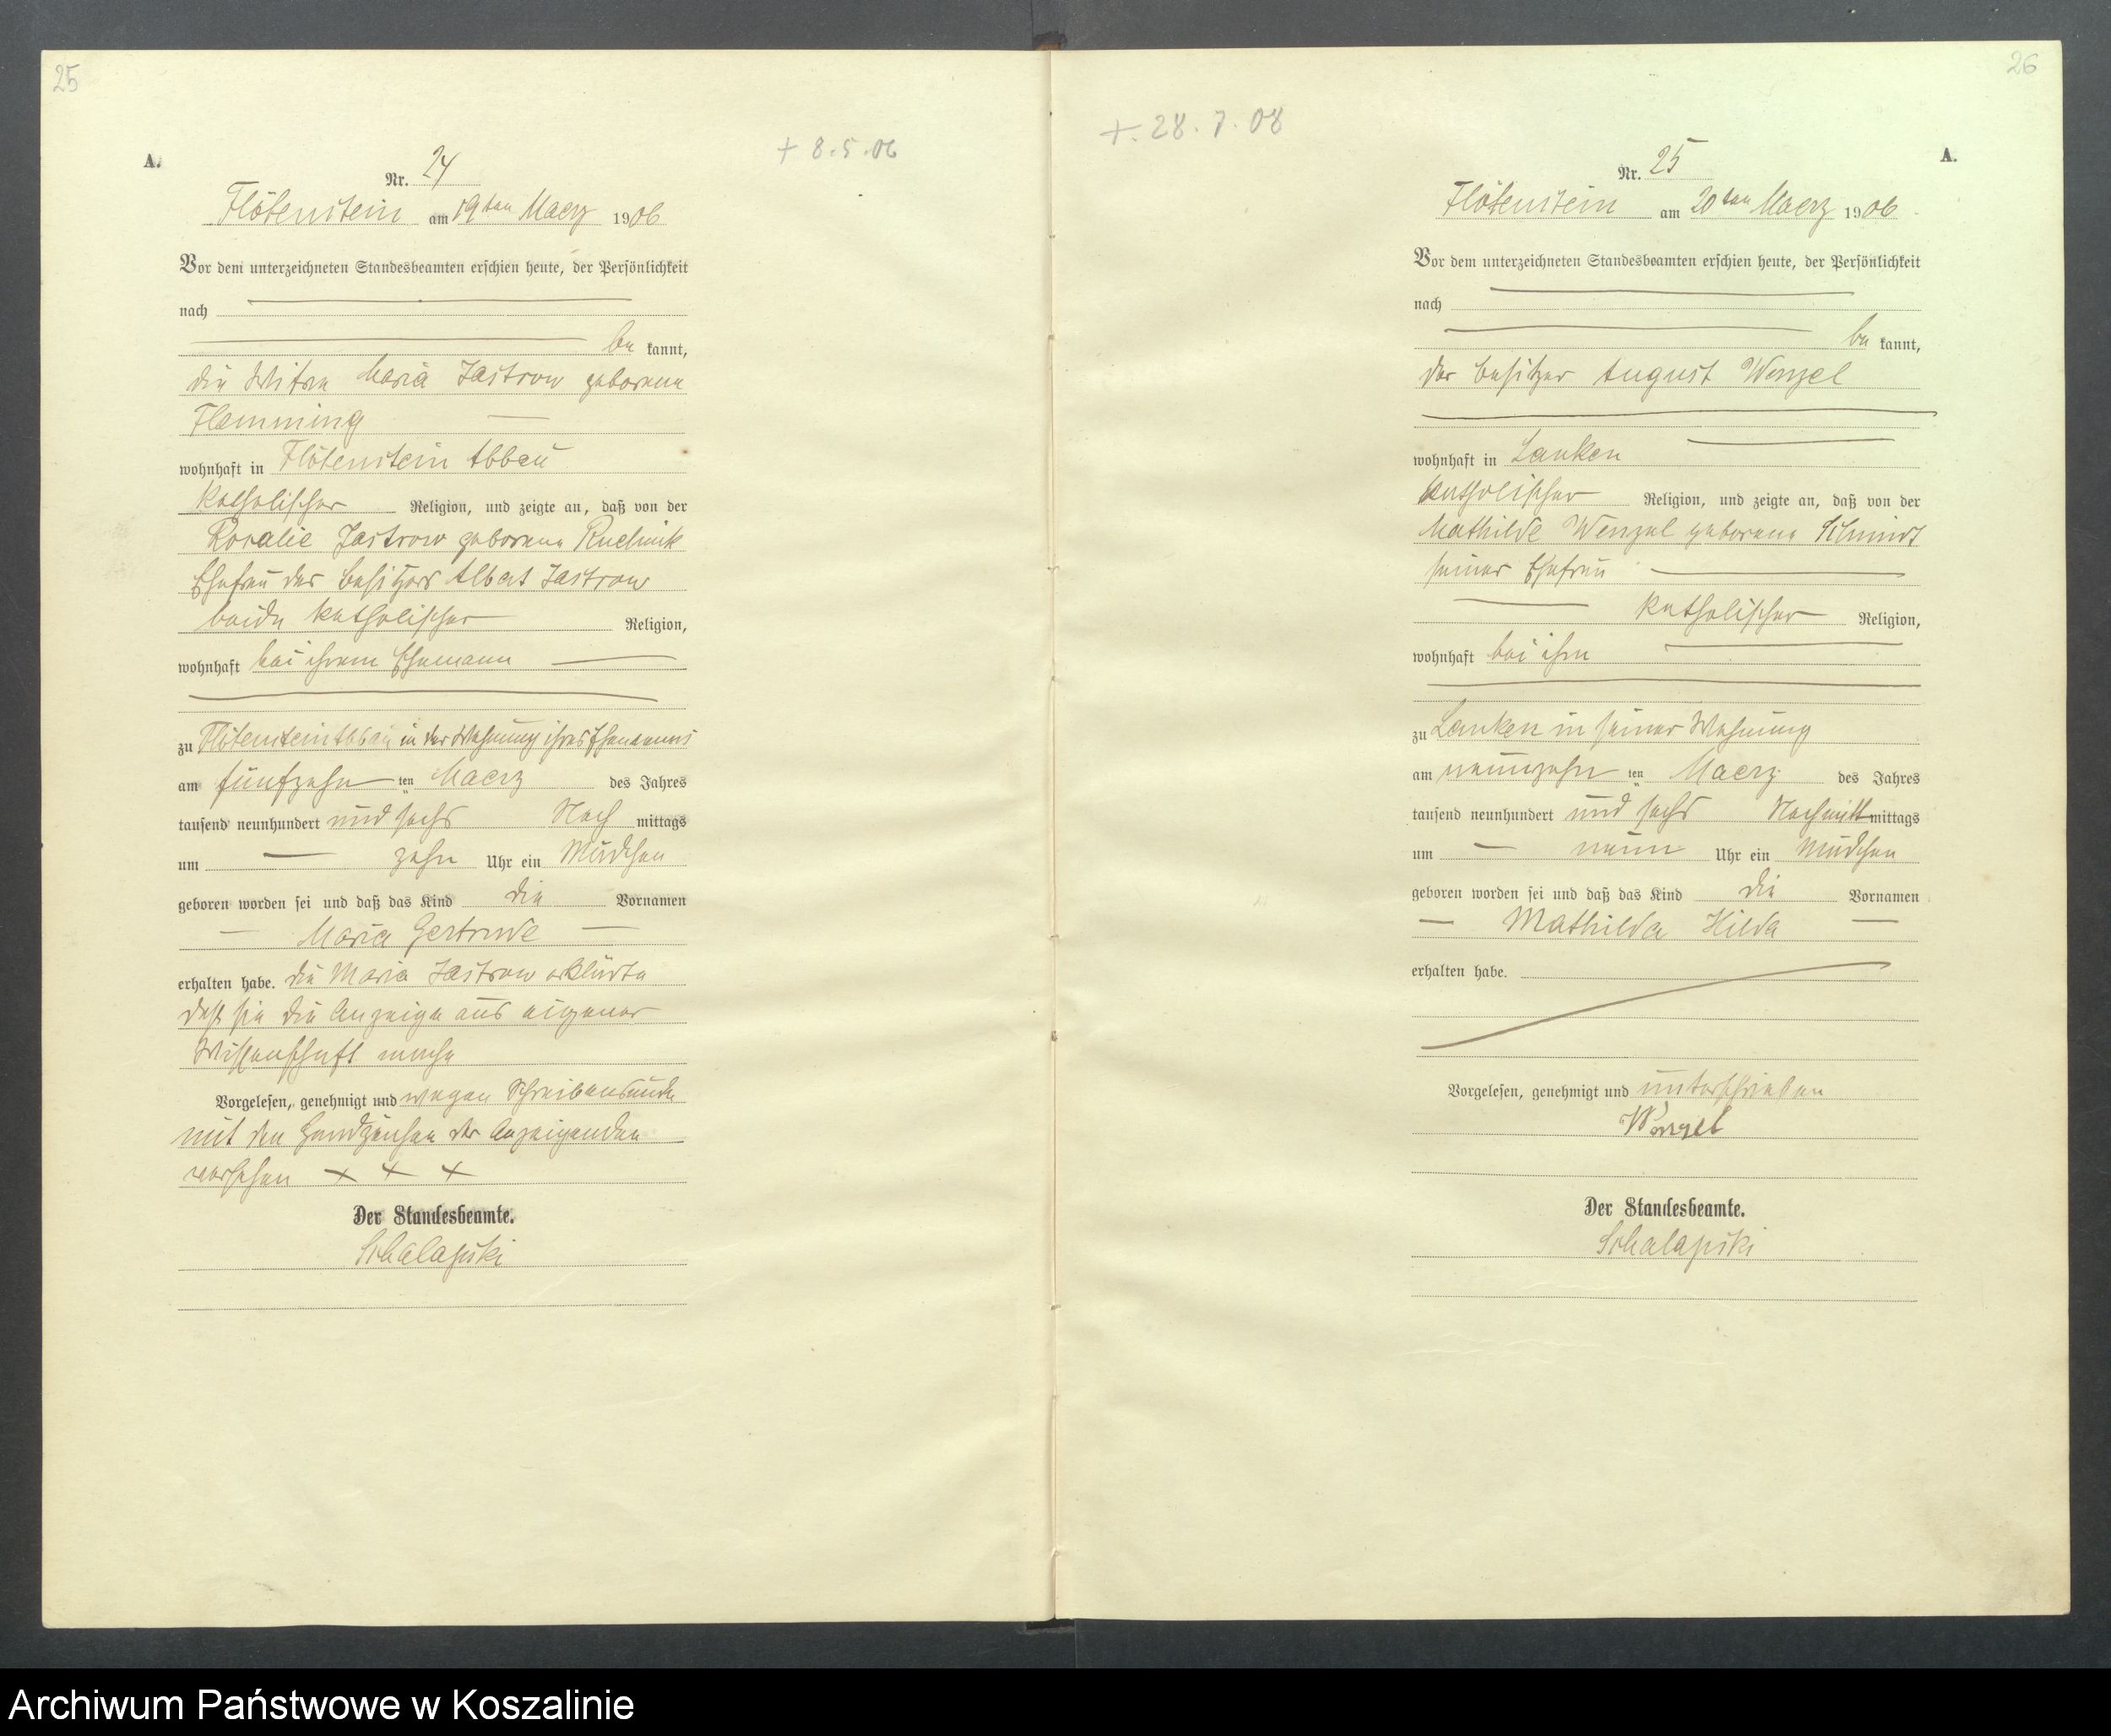 25
+ 8.5.06
A.
Nr. 24
Flötenstein am 19ten Maerz 1906
Vor dem unterzeichneten Standesbeamten erschien heute, der Persönlichkeit
nach
be kannt,
die Witwe Maria Jastrow geborene
Flemming
wohnhaft in Flötenstein Abbau
katholischer Religion, und zeigte an, daß von der
Rosalie Jastrow geborene
Ehefrau des Besitzers Albert Jastrow
beide katholischer Religion,
wohnhaft bei ihrem Ehemann
zu Flötenstein Abbau in der Wohnung ihres Ehemannes
am fünfzehn ten Maerz des Jahres
tausend neunhundert und sechs Nach mittags
um zehn Uhr ein Mädchen
geboren worden sei und daß das Kind die Vornamen
Maria Gertrude
erhalten habe. die Maria Jastrow erklärte
daß sie die Anzeige aus eigener
Wissenschaft mache
Vorgelesen, genehmigt und wegen Schreibensunkunde
mit den Handzeichen der Anzeigenden
versehen + + +
Der Standesbeamte.
Schalapski
26
+. 28. 7. 08
A.
Nr. 25
Flötenstein am 20ten Maerz 1906
Vor dem unterzeichneten Standesbeamten erschien heute, der Persönlichkeit
nach
be kannt,
der Besitzer August Wenzel
wohnhaft in Lanken
katholischer Religion, und zeigte an, daß von der
Mathilde Wenzel geborene Schmidt
seiner Ehefrau
katholischer Religion,
wohnhaft bei ihm
zu Lanken in seiner Wohnung
am neunzehn ten Maerz des Jahres
tausend neunhundert und sechs Nachmitt mittags
um neun Uhr ein Mädchen
geboren worden sei und daß das Kind die Vornamen
Mathilda Hilda
erhalten habe.
Vorgelesen, genehmigt und unterschrieben
Wenzel
Der Standesbeamte.
Schalapski
Archiwum Państwowe w Koszalinie